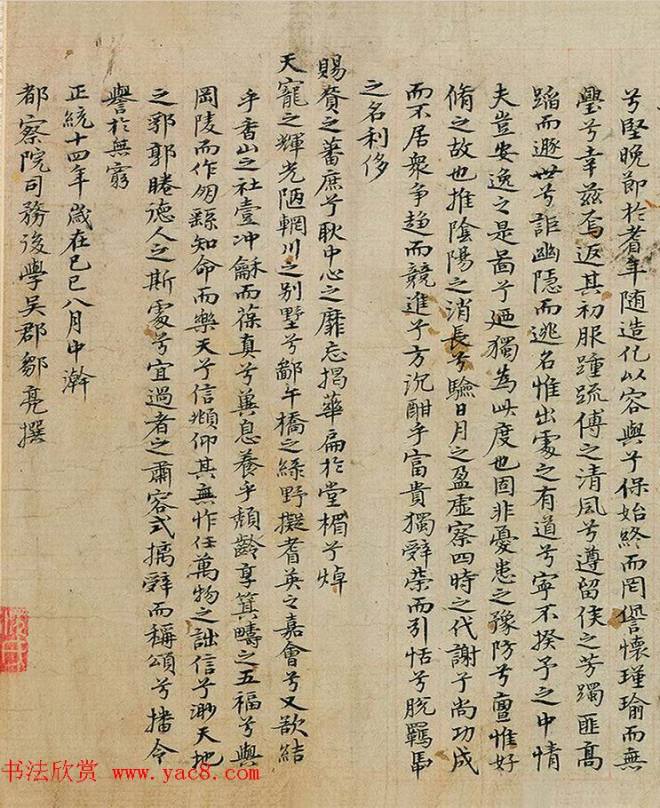 兮堅晚節於耆年随造化以容與兮保始終而罔諐懷瑾瑜而無
璺兮幸兹焉返其初服踵疏傅之清風兮遵留侯之芳躅匪高
蹈而遯世兮詎幽隱而逃名惟出處之有道兮寧不揆予之中情
夫豈安逸之是圖兮廼獨為此度也固非憂患之豫防兮亶惟好
脩之故也推陰陽之消長兮驗日月之盈虛察四時之代謝兮尚功成
而不居衆争趋而競進兮方沉酣乎富貴獨辤榮而引恬兮脱羈馽
之名利侈
賜賚之蕃庶兮耿中心之靡忘揭華扁於堂楣兮焯
天寵之輝光陋輞川之别墅兮鄙午橋之緑野擬耆英之嘉會兮又欲結
乎香山之社壹冲龢而葆真兮兾息養乎頽齡享箕疇之五福兮與
岡陵而作朋繇知命而樂天兮信頫仰其無怍任萬物之詘信兮渺天地
之郛郭睠德人之斯處兮宜過者之肅容式摛辤而稱頌兮播令
譽於無窮
正統十四年歲在己巳八月中澣
都察院司務後學吴郡鄒亮撰
书法欣赏 www.yac8.com